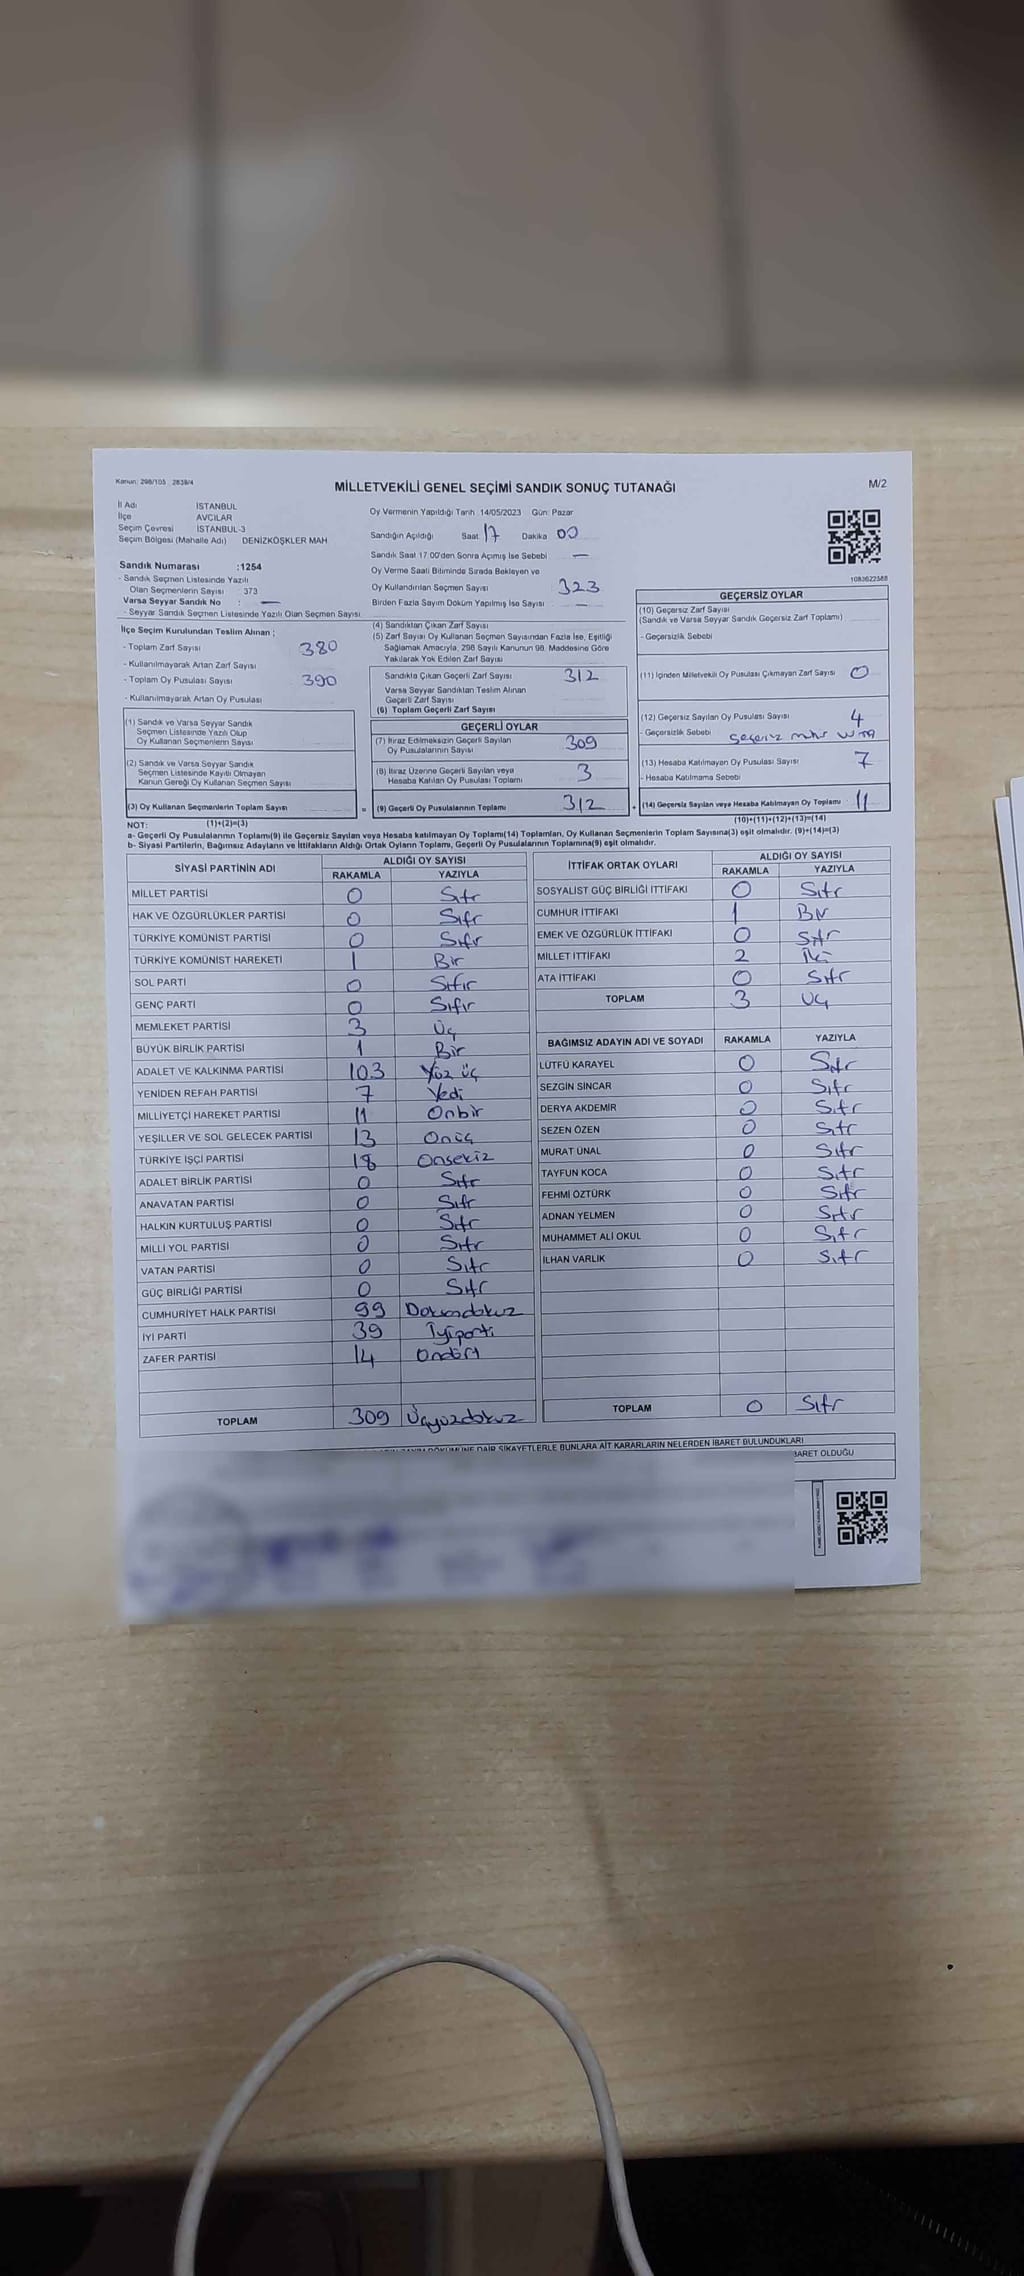 Kanun: 298/105 2839/4
MİLLETVEKİLİ GENEL SEÇİMİ SANDIK SONUÇ TUTANAĞI
M/2
İl Adı İSTANBUL
İlçe AVCILAR
Seçim Çevresi İSTANBUL-3
Seçim Bölgesi (Mahalle Adı) DENİZKÖŞKLER MAH
Sandık Numarası :1254
- Sandık Seçmen Listesinde Yazılı
Olan Seçmenlerin Sayısı 373
Varsa Seyyar Sandık No : —
- Seyyar Sandık Seçmen Listesinde Yazılı Olan Seçmen Sayısı
İlçe Seçim Kurulundan Teslim Alınan ;
- Toplam Zarf Sayısı 380
- Kullanılmayarak Artan Zarf Sayısı
- Toplam Oy Pusulası Sayısı 390
- Kullanılmayarak Artan Oy Pusulası
(1) Sandık ve Varsa Seyyar Sandık
Seçmen Listesinde Yazılı Olup
Oy Kullanan Seçmenlerin Sayısı
(2) Sandık ve Varsa Seyyar Sandık
Seçmen Listesinde Kayıtlı Olmayan
Kanun Gereği Oy Kullanan Seçmen Sayısı
(3) Oy Kullanan Seçmenlerin Toplam Sayısı =
(1)+(2)=(3)
Oy Vermenin Yapıldığı Tarih :14/05/2023 Gün: Pazar
Sandığın Açıldığı Saat 17 Dakika 00
Sandık Saat 17.00'den Sonra Açımış İse Sebebi —
Oy Verme Saati Bitiminde Sırada Bekleyen ve
Oy Kullandırılan Seçmen Sayısı 323
Birden Fazla Sayım Döküm Yapılmış İse Sayısı —
(4) Sandıktan Çıkan Zarf Sayısı
(5) Zarf Sayısı Oy Kullanan Seçmen Sayısından Fazla İse, Eşitliği
Sağlamak Amacıyla, 298 Sayılı Kanunun 98. Maddesine Göre
Yakılarak Yok Edilen Zarf Sayısı
Sandıkta Çıkan Geçerli Zarf Sayısı 312
Varsa Seyyar Sandıktan Teslim Alınan
Geçerli Zarf Sayısı
(6) Toplam Geçerli Zarf Sayısı
GEÇERLİ OYLAR
(7) İtiraz Edilmeksizin Geçerli Sayılan
Oy Pusulalarının Sayısı 309
(8) İtiraz Üzerine Geçerli Sayılan veya
Hesaba Katılan Oy Pusulası Toplamı 3
(9) Geçerli Oy Pusulalarının Toplamı 312 +
1083622588
GEÇERSİZ OYLAR
(10) Geçersiz Zarf Sayısı
(Sandık ve Varsa Seyyar Sandık Geçersiz Zarf Toplamı)
- Geçersizlik Sebebi
(11) İçinden Milletvekili Oy Pusulası Çıkmayan Zarf Sayısı 0
(12) Geçersiz Sayılan Oy Pusulası Sayısı 4
- Geçersizlik Sebebi
(13) Hesaba Katılmayan Oy Pusulası Sayısı 7
- Hesaba Katılmama Sebebi
(14) Geçersiz Sayılan veya Hesaba Katılmayan Oy Toplamı 11
(10)+(11)+(12)+(13)=(14)
NOT:
a- Geçerli Oy Pusulalarının Toplamı(9) ile Geçersiz Sayılan veya Hesaba katılmayan Oy Toplamı(14) Toplamları, Oy Kullanan Seçmenlerin Toplam Sayısına(3) eşit olmalıdır. (9)+(14)=(3)
b- Siyasi Partilerin, Bağımsız Adayların ve İttifakların Aldığı Ortak Oyların Toplamı, Geçerli Oy Pusulalarının Toplamına(9) eşit olmalıdır.
SİYASİ PARTİNİN ADI ALDIĞI OY SAYISI
RAKAMLA YAZIYLA
MİLLET PARTİSİ 0 Sıfr
HAK VE ÖZGÜRLÜKLER PARTİSİ 0 Sıfr
TÜRKİYE KOMÜNİST PARTİSİ 0 Sıfr
TÜRKİYE KOMÜNİST HAREKETİ 1 Bir
SOL PARTİ 0 Sıfır
GENÇ PARTİ 0 Sıfır
MEMLEKET PARTİSİ 3 Üç
BÜYÜK BİRLİK PARTİSİ 1 Bir
ADALET VE KALKINMA PARTİSİ 103 Yüz üç
YENİDEN REFAH PARTİSİ 7 Yedi
MİLLİYETÇİ HAREKET PARTİSİ 11 Onbir
YEŞİLLER VE SOL GELECEK PARTİSİ 13 Onüç
TÜRKİYE İŞÇİ PARTİSİ 18 Onsekiz
ADALET BİRLİK PARTİSİ 0 Sıfr
ANAVATAN PARTİSİ 0 Sıfr
HALKIN KURTULUŞ PARTİSİ 0 Sıfr
MİLLİ YOL PARTİSİ 0 Sıfr
VATAN PARTİSİ 0 Sıfr
GÜÇ BİRLİĞİ PARTİSİ 0 Sıfr
CUMHURİYET HALK PARTİSİ 99 Doksandokuz
İYİ PARTİ 39 İyiparti
ZAFER PARTİSİ 14 Ondört
TOPLAM 309 Üçyüzdokuz
İTTİFAK ORTAK OYLARI ALDIĞI OY SAYISI
RAKAMLA YAZIYLA
SOSYALİST GÜÇ BİRLİĞİ İTTİFAKI 0 Sıfr
CUMHUR İTTİFAKI 1 Bir
EMEK VE ÖZGÜRLÜK İTTİFAKI 0 Sıfr
MİLLET İTTİFAKI 2 İki
ATA İTTİFAKI 0 Sıfr
TOPLAM 3 Üç
BAĞIMSIZ ADAYIN ADI VE SOYADI RAKAMLA YAZIYLA
LÜTFÜ KARAYEL 0 Sıfr
SEZGİN SİNCAR 0 Sıfr
DERYA AKDEMİR 0 Sıfr
SEZEN ÖZEN 0 Sıfr
MURAT ÜNAL 0 Sıfr
TAYFUN KOCA 0 Sıfr
FEHMİ ÖZTÜRK 0 Sıfr
ADNAN YELMEN 0 Sıfr
MUHAMMET ALİ OKUL 0 Sıfr
İLHAN VARLIK 0 Sıfr
TOPLAM 0 Sıfr
DAİR ŞİKAYETLERLE BUNLARA AİT KARARLARIN NELERDEN İBARET BULUNDUKLARI
BARET OLDUĞU